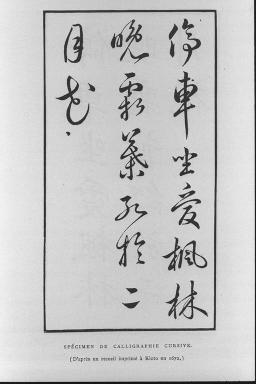 停車坐愛楓林
晩霜葉紅於二
月花
SPÉCIMEN DE CALLIGRAPHIE CURSIVE.
(D'après un recueil imprimé à Kioto en 1672.)